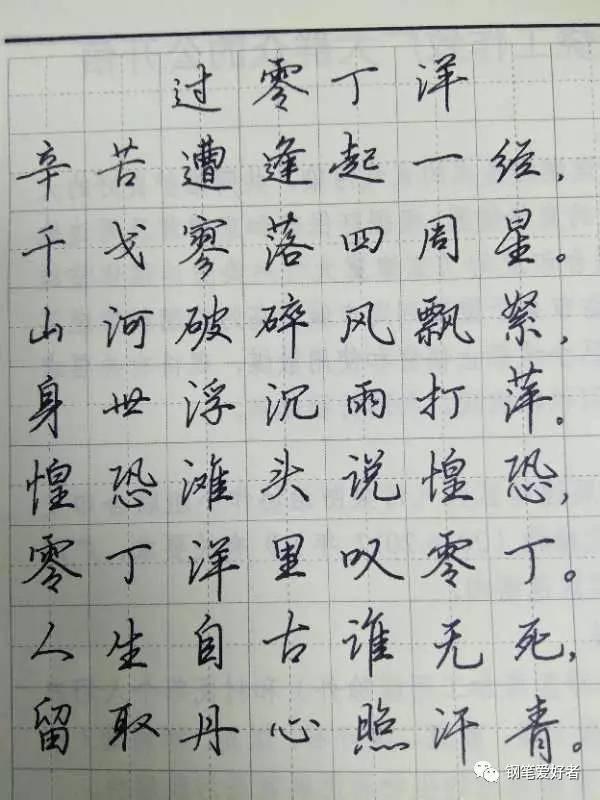 过零丁洋
辛苦遭逢起一经，
干戈寥落四周星。
山河破碎风飘絮，
身世浮沉雨打萍。
惶恐滩头说惶恐，
零丁洋里叹零丁。
人生自古谁无死，
留取丹心照汗青。
钢笔爱好者